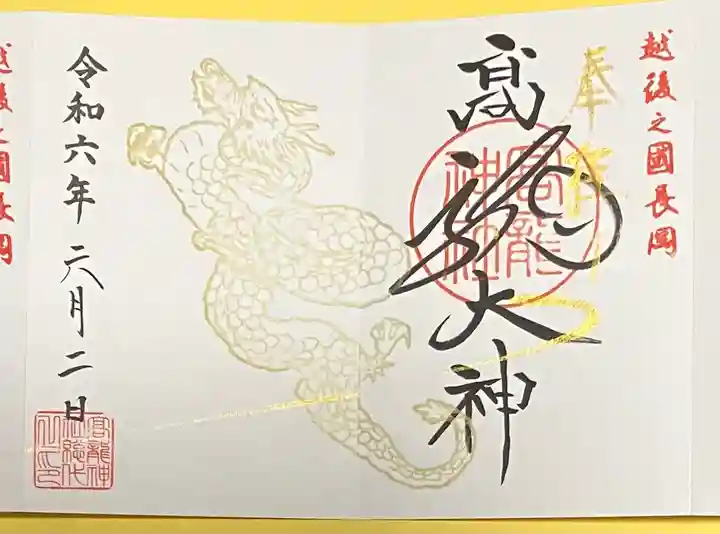 越後之國長岡
奉拝
高龍大神
高龍
神社
令和六年六月二日
高龍神
社総代
之印
越後之國長岡